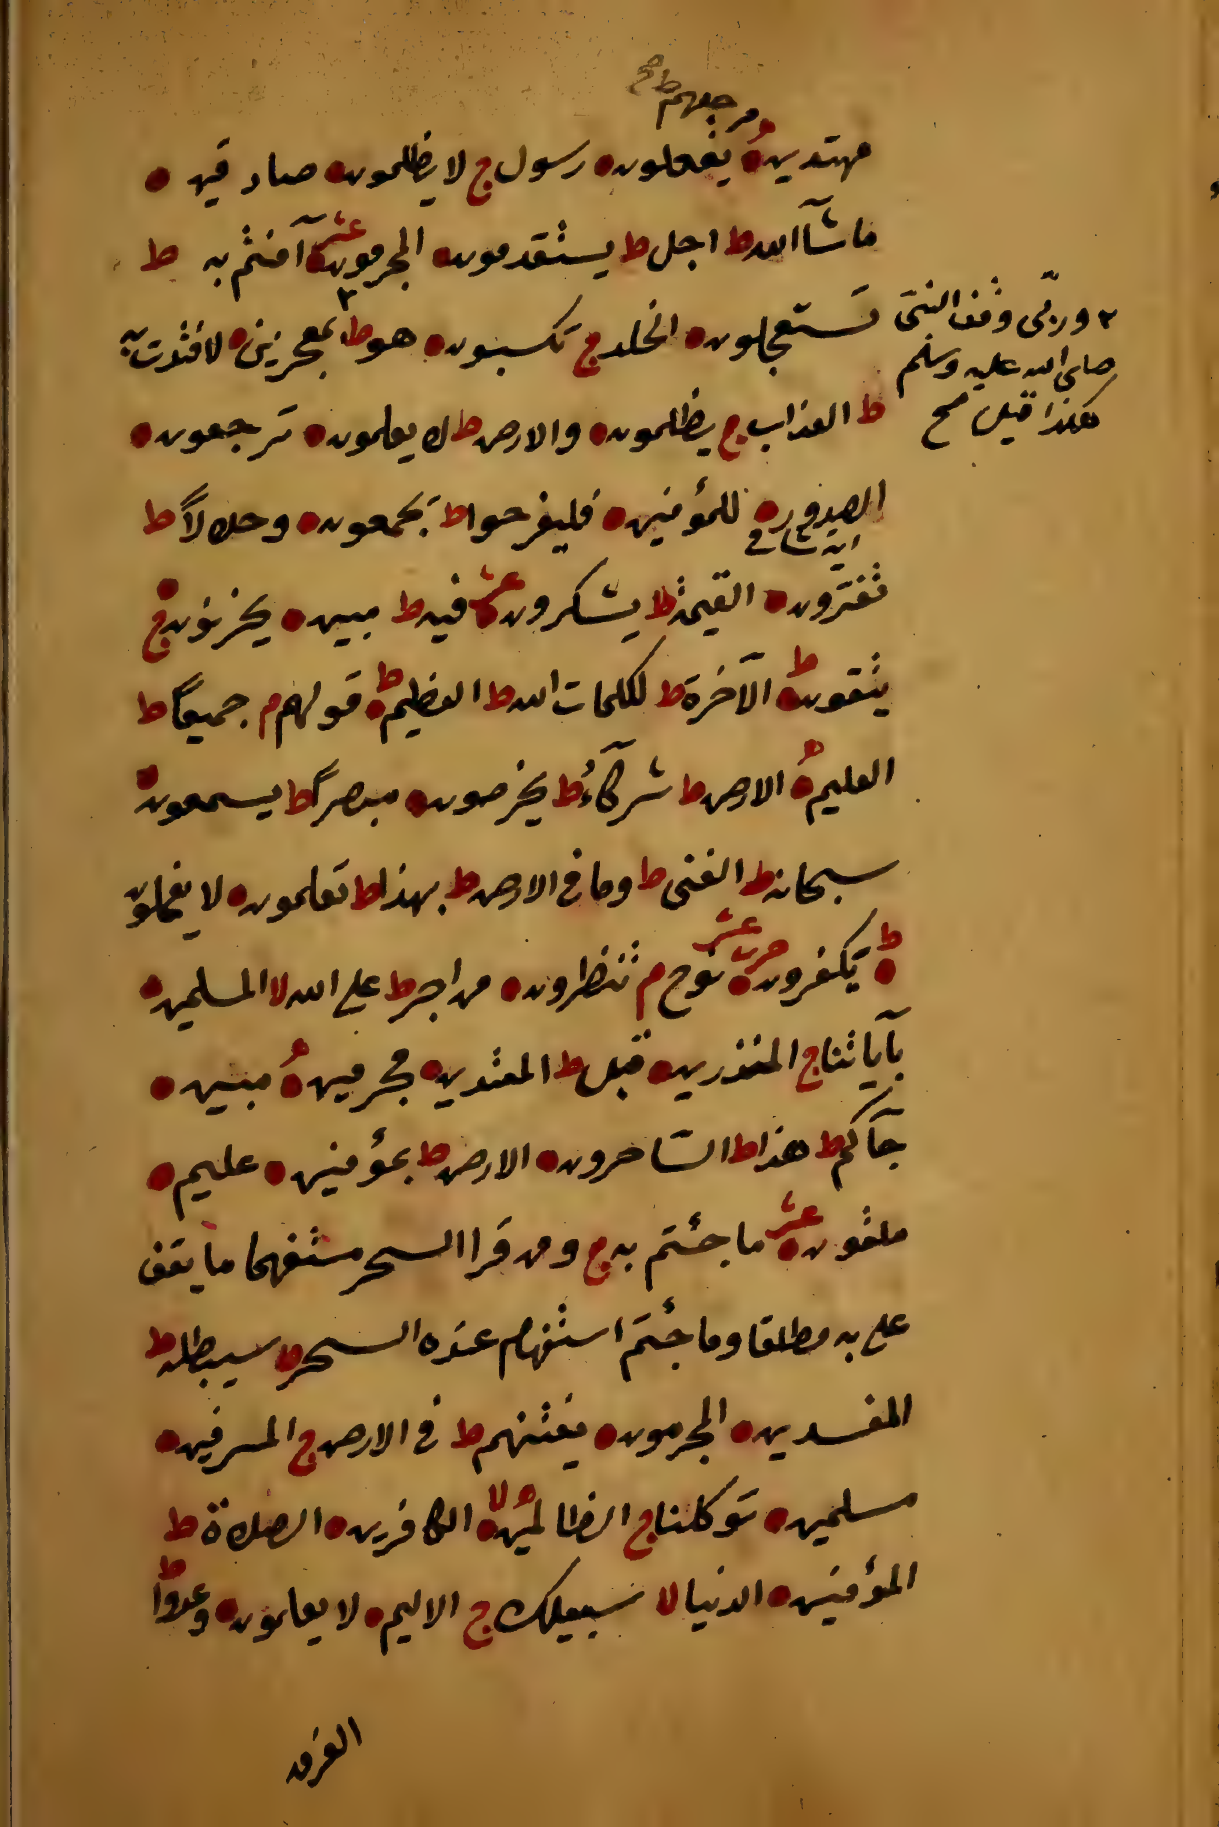 مرجعهم ط صح
مهتدين ۝ يفعلون ۝ رسول ج لا يظلمون ۝ صادقين ۝
ماشآالله ط اجل ط يستقدمون ۝ المجرمون ۝ عشر آمنتم به ط
تستعجلون ۝ الخلد ج تكسبون ۝ هو ط ٢ بمعجزين ۝ لافتدت به
٢ وربّى وقف النبى
صلى الله عليه وسلم
هكذا قيل صح
ط العذاب ج يظلمون ۝ والارض ط لا يعلمون ۝ ترجعون ۝
الصدور ۝ للمؤمنين ۝ فليفرحوا ط يجمعون ۝ وحلالاً ط
تفترون ۝ القيمة ط يشكرون ۝ عشر فيه ط مبين ۝ يحزنون ۝ ج
يتقون ۝ ط الآخرة ط لكلمات الله ط العظيم ۝ ط قولهم م جميعاً ط
العليم ۝ الارض ط شركآءُ ط يخرصون ۝ مبصراً ط يسمعون ۝
سبحانه ط الغنى ط وما فى الارض ط بهذا ط تعلمون ۝ لا يفلحون
۝ ط يكفرون ۝ حزب عشر نوح م تنظرون ۝ من اجر ط على الله لا المسلمين ۝
بآياتنا ج المنذرين ۝ قبل ط المعتدين ۝ مجرمين ۝ مبين ۝
جآكم ط هذا ط السّاحرون ۝ الارض ط بمؤمنين ۝ عليم ۝
ملقون ۝ عشر ما جئتم به ج ومن قرا السحر مستفهما ما يقف
على به مطلقا وما جئتم استفهام عنده السحر ط سيبطله ط
المفسدين ۝ المجرمون ۝ يفتنهم ط فى الارض ج المسرفين ۝
مسلمين ۝ توكلنا ج الظالمين ۝ لا الكافرين ۝ الصلاة ط
المؤمنين ۝ الدنيا لا سبيلك ج الاليم ۝ لا يعلمون ۝ وعدواً ط
الغرق